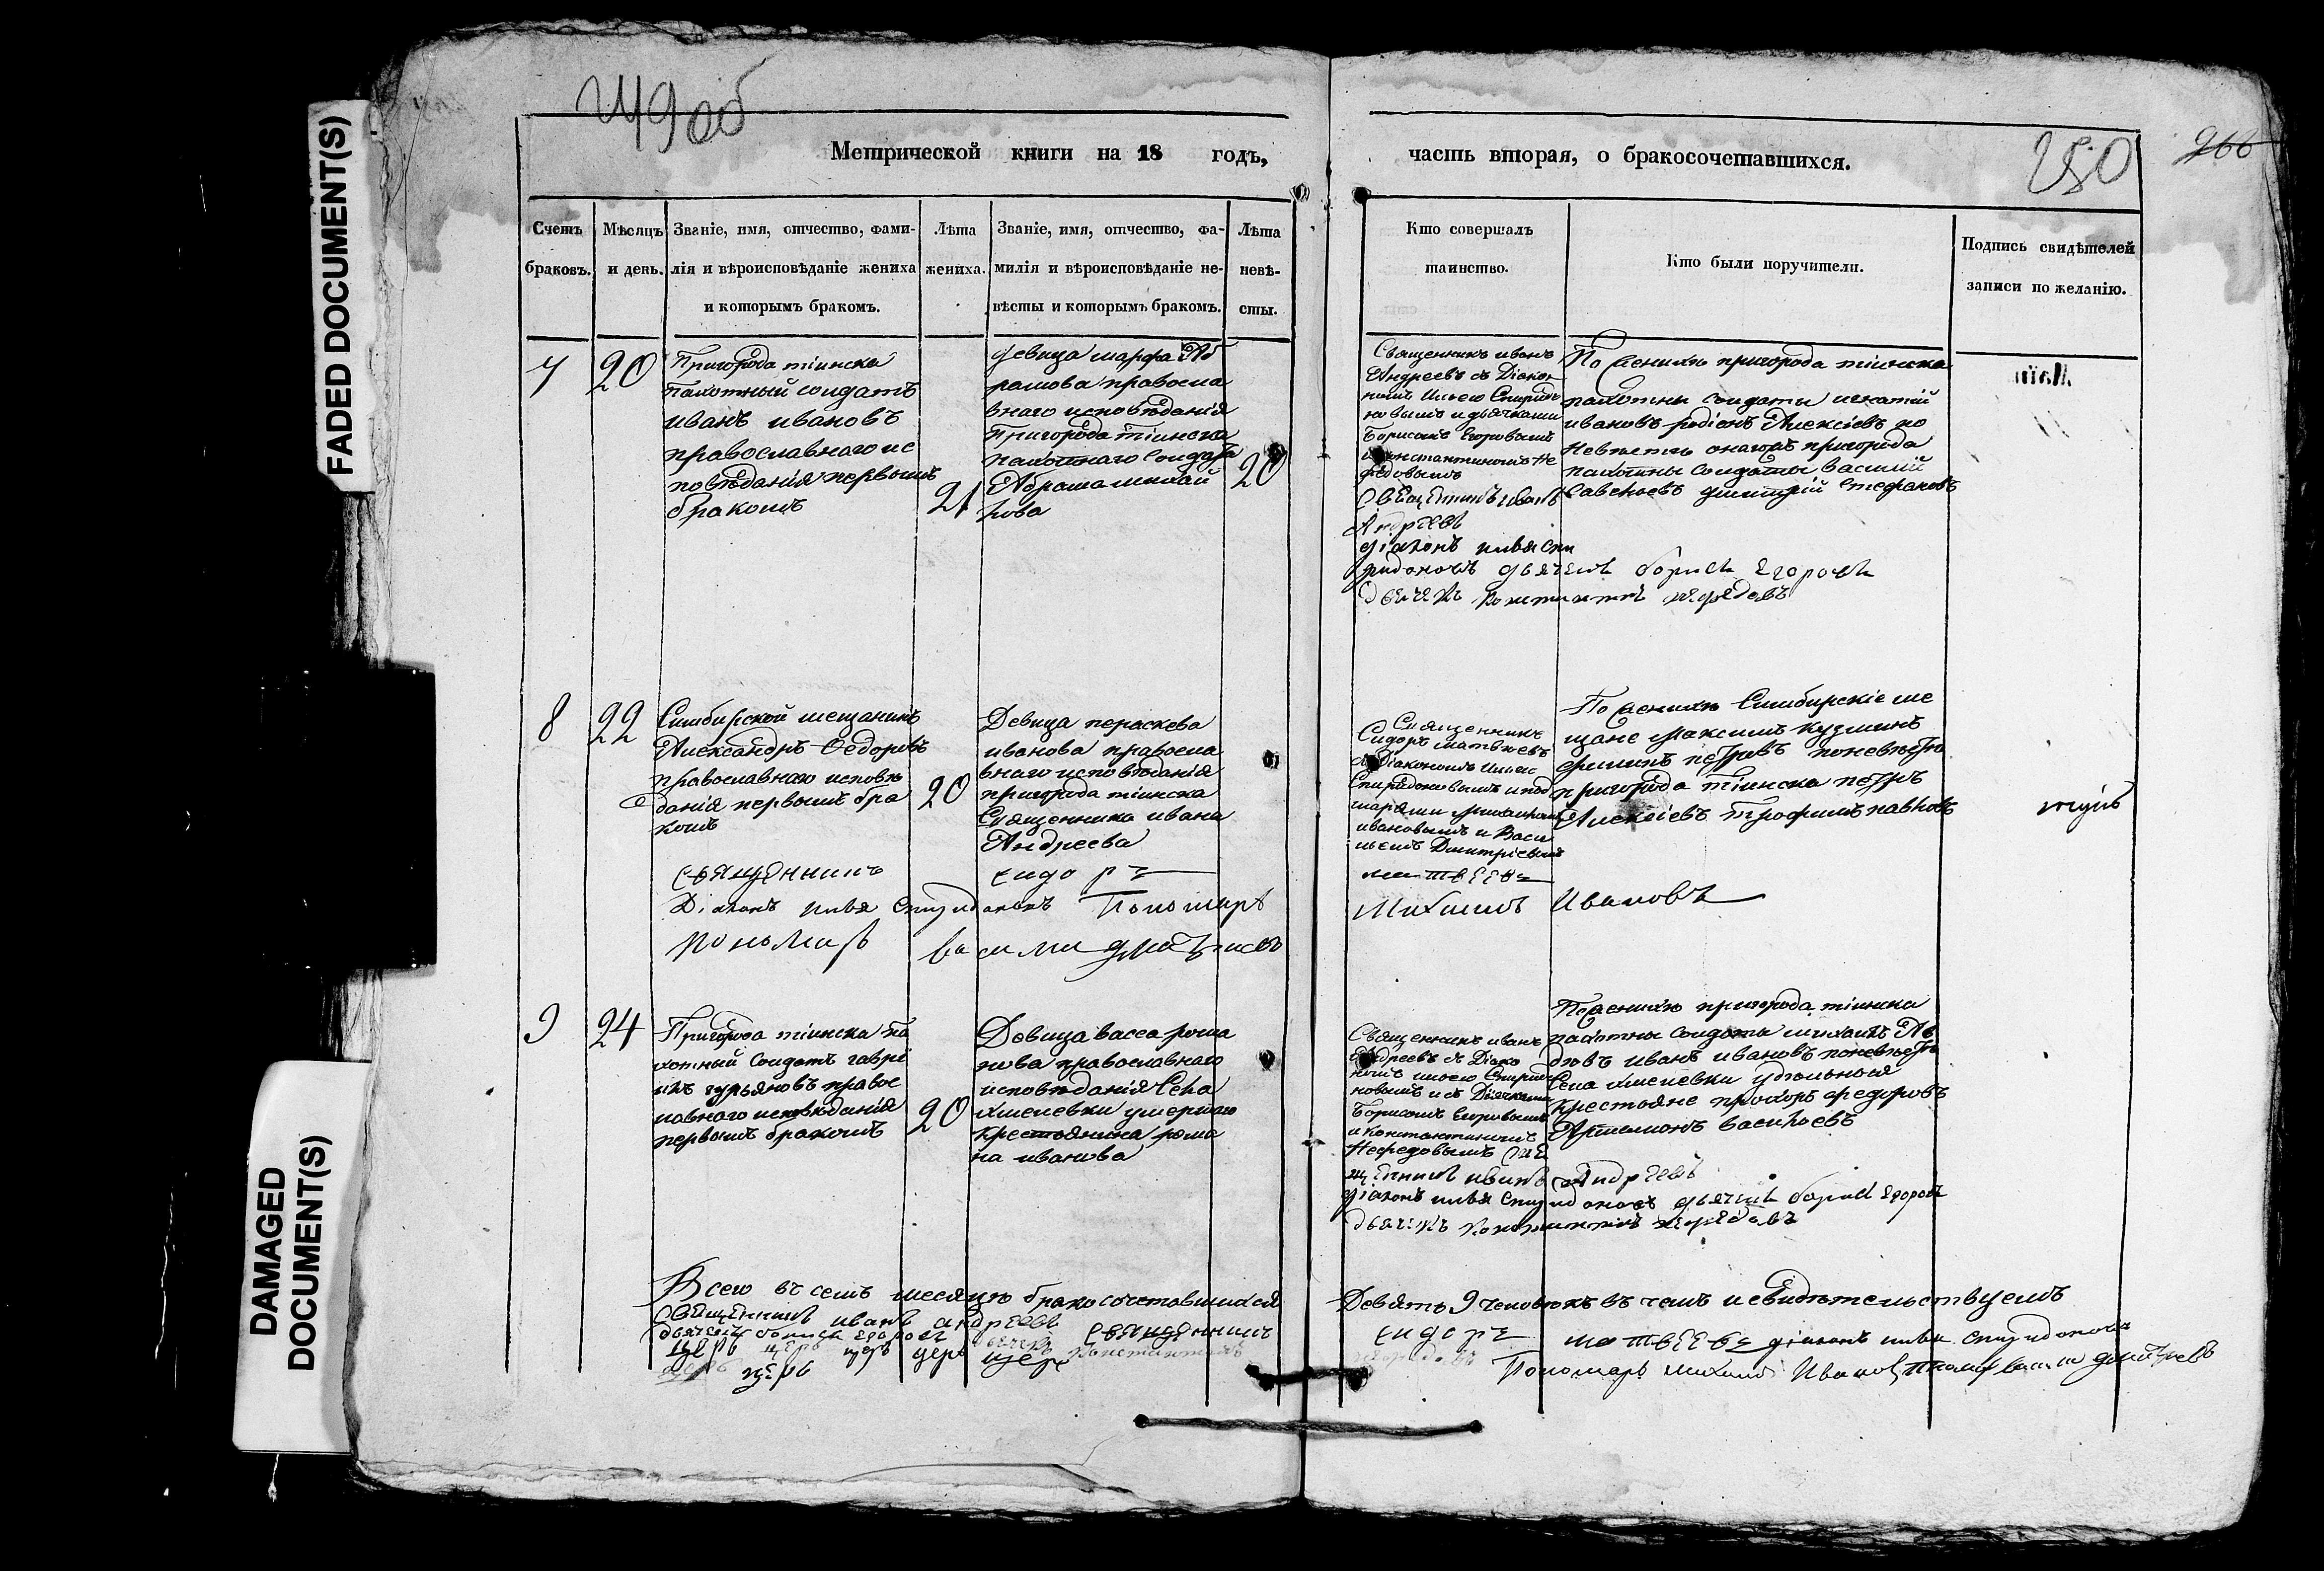 FADED DOCUMENT(S)
DAMAGED
DOCUMENT(S)
об
250
266
Метрической книги на 18 годъ,
часть вторая, о бракосочетавшихся.
Счетъ
браковъ.
Мѣсяцъ
и день.
Званіе, имя, отчество, фами-
лія и вѣроисповѣданіе жениха
и которымъ бракомъ.
Лѣта
жениха.
Званіе, имя, отчество, фа-
милія и вѣроисповѣданіе не-
вѣсты и которымъ бракомъ.
Лѣта
невѣ-
сты.
Кто совершалъ
таинство.
Кто были поручители.
Подпись свидѣтелей
записи по желанію.
7
20
Пригорода тіинска
пахотный солдатъ
иванъ ивановъ
православнаго ис
повѣданія первымъ
бракомъ
21
девица марфа Аб
рамова правосла
внаго исповѣданія
Пригорода тіинска
пахотнаго солдата
Абрама михай
лова
20
Священникъ иванъ
Андреевъ съ Діако
номъ Ильею Спиридо
новымъ и дьячками
Борисомъ Егоровымъ
и константиномъ Не
федовымъ
Священникъ иванъ
Андреевъ
діаконъ илья спи
ридоновъ дьячекъ борисъ егоровъ
дьячекъ Константинъ нефедовъ
По женихѣ пригорода тіинска
пахотны солдаты игнатій
ивановъ родіонъ Алексіевъ по
невѣсты онагожъ пригорода
пахотны солдаты василій
савельевъ дмитрій Стефановъ
8
22
Симбирской мещанинъ
Александръ Федоровъ
православнаго исповѣ
данія первымъ бра
комъ
20
Девица пераскева
иванова правосла
внаго исповѣданія
пригорода тіинска
Священника ивана
Андреева
Священникъ
Сидоръ матвѣевъ
съ Діакономъ Ильею
Спиридоновымъ и поно
марями михаиломъ
ивановымъ и Васи
льемъ Дмитріевымъ
По женихѣ Симбирскіе ме
щане максимъ кузминъ
филипъ петровъ по невѣстѣ
пригорода тіинска петръ
Алексіевъ трофимъ павловъ
священникъ сидоръ матвеевъ
Діаконъ илья Спиридоновъ Пономарь Михаилъ Ивановъ
пономарь василий дмитриевъ
9
24
Пригорода тіинска па
хотный солдатъ гаври
илъ гурьяновъ правос
лавнаго исповѣданія
первымъ бракомъ
20
Девица васса рома
нова православнаго
исповѣданія Села
хмелевки умершаго
крестьянина рома
на иванова
Священникъ иванъ
Андреевъ съ Діако
номъ ильею Спиридо
новымъ и съ Діячками
Борисомъ Егоровымъ
и константиномъ
Нефедовымъ свя
щенникъ иванъ Андреевъ
діаконъ илья спиридоновъ дьячекъ борисъ егоровъ
дьячекъ Константинъ нефедовъ
По женихѣ пригорода тіинска
пахотны солдаты михаилъ Ав
дѣевъ иванъ ивановъ по невѣстѣ
Села хмелевки удѣльныя
крестьяне прохоръ федоровъ
Артамонъ васильевъ
Всего въ семъ месяцѣ бракосочетавшихся Девять 9 человѣкъ въ чемъ и свидѣтельствуемъ
священникъ иванъ андреевъ
дьячекъ борисъ егоровъ дьячекъ Константинъ
священникъ сидоръ матвеевъ діаконъ илья спиридоновъ
Пономарь михаилъ Ивановъ пономарь василий дмитриевъ